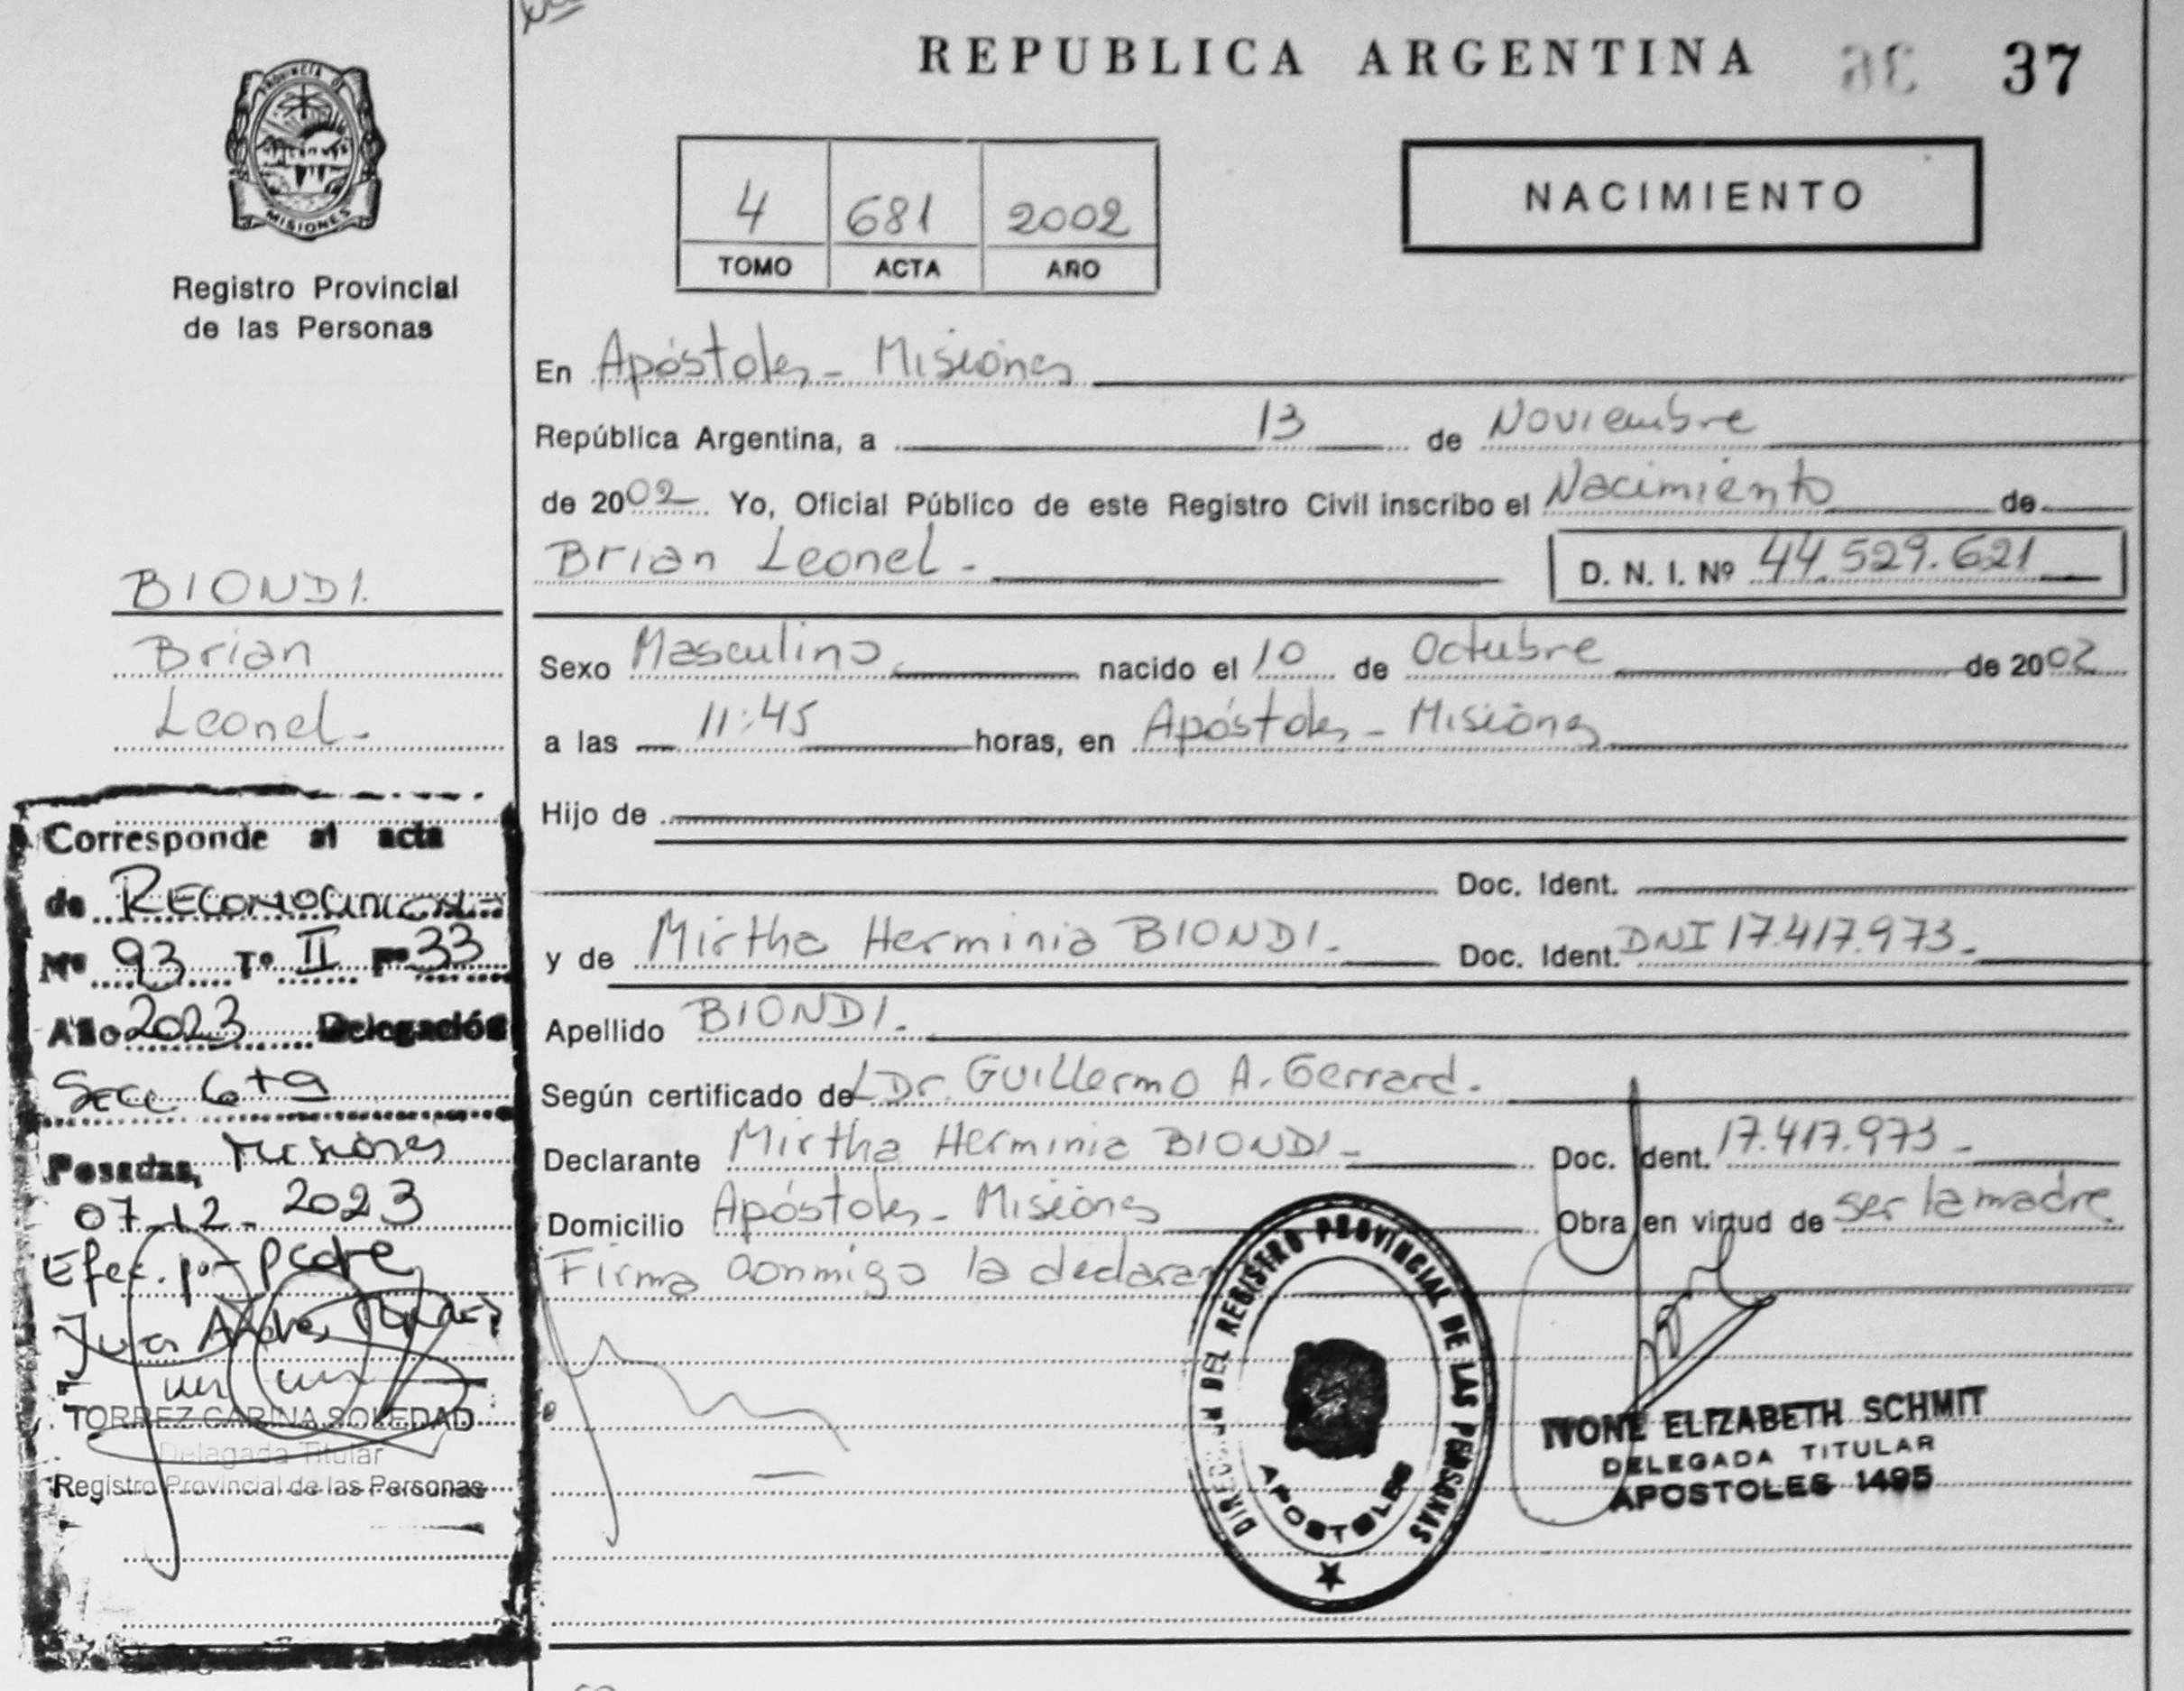 REPUBLICA ARGENTINA 37
PROVINCIA DE
MISIONES
Registro Provincial
de las Personas
4 681 2002
TOMO ACTA AÑO
NACIMIENTO
En Apóstoles - Misiones
República Argentina, a 13 de Noviembre
de 2002 Yo, Oficial Público de este Registro Civil inscribo el Nacimiento de
Brian Leonel - D. N. I. Nº 44.529.621
BIONDI.
Brian
Leonel -
Sexo Masculino nacido el 10 de Octubre de 2002
a las 11:45 horas, en Apóstoles - Misiones
Hijo de
Doc. Ident.
y de Mirtha Herminia BIONDI - Doc. Ident. DNI 17.417.973 -
Apellido BIONDI.
Según certificado de Dr. Guillermo A. Gerrard.
Declarante Mirtha Herminia BIONDI - Doc. Ident. 17.417.973 -
Domicilio Apóstoles - Misiones Obra en virtud de ser la madre
Firma conmigo la
Corresponde al acta
de
Nº 93 Tº II Fº 33
Año 2023 Delegación
Secc
Posadas, Misiones
07-12-2023
Efec. por padre
Juan Andrés
TORREZ CARINA SOLEDAD
Delegada Titular
Registro Provincial de las Personas
DEL REGISTRO PROVINCIAL DE LAS PERSONAS
APOSTOLES
IVONE ELIZABETH SCHMIT
DELEGADA TITULAR
APOSTOLES 1495